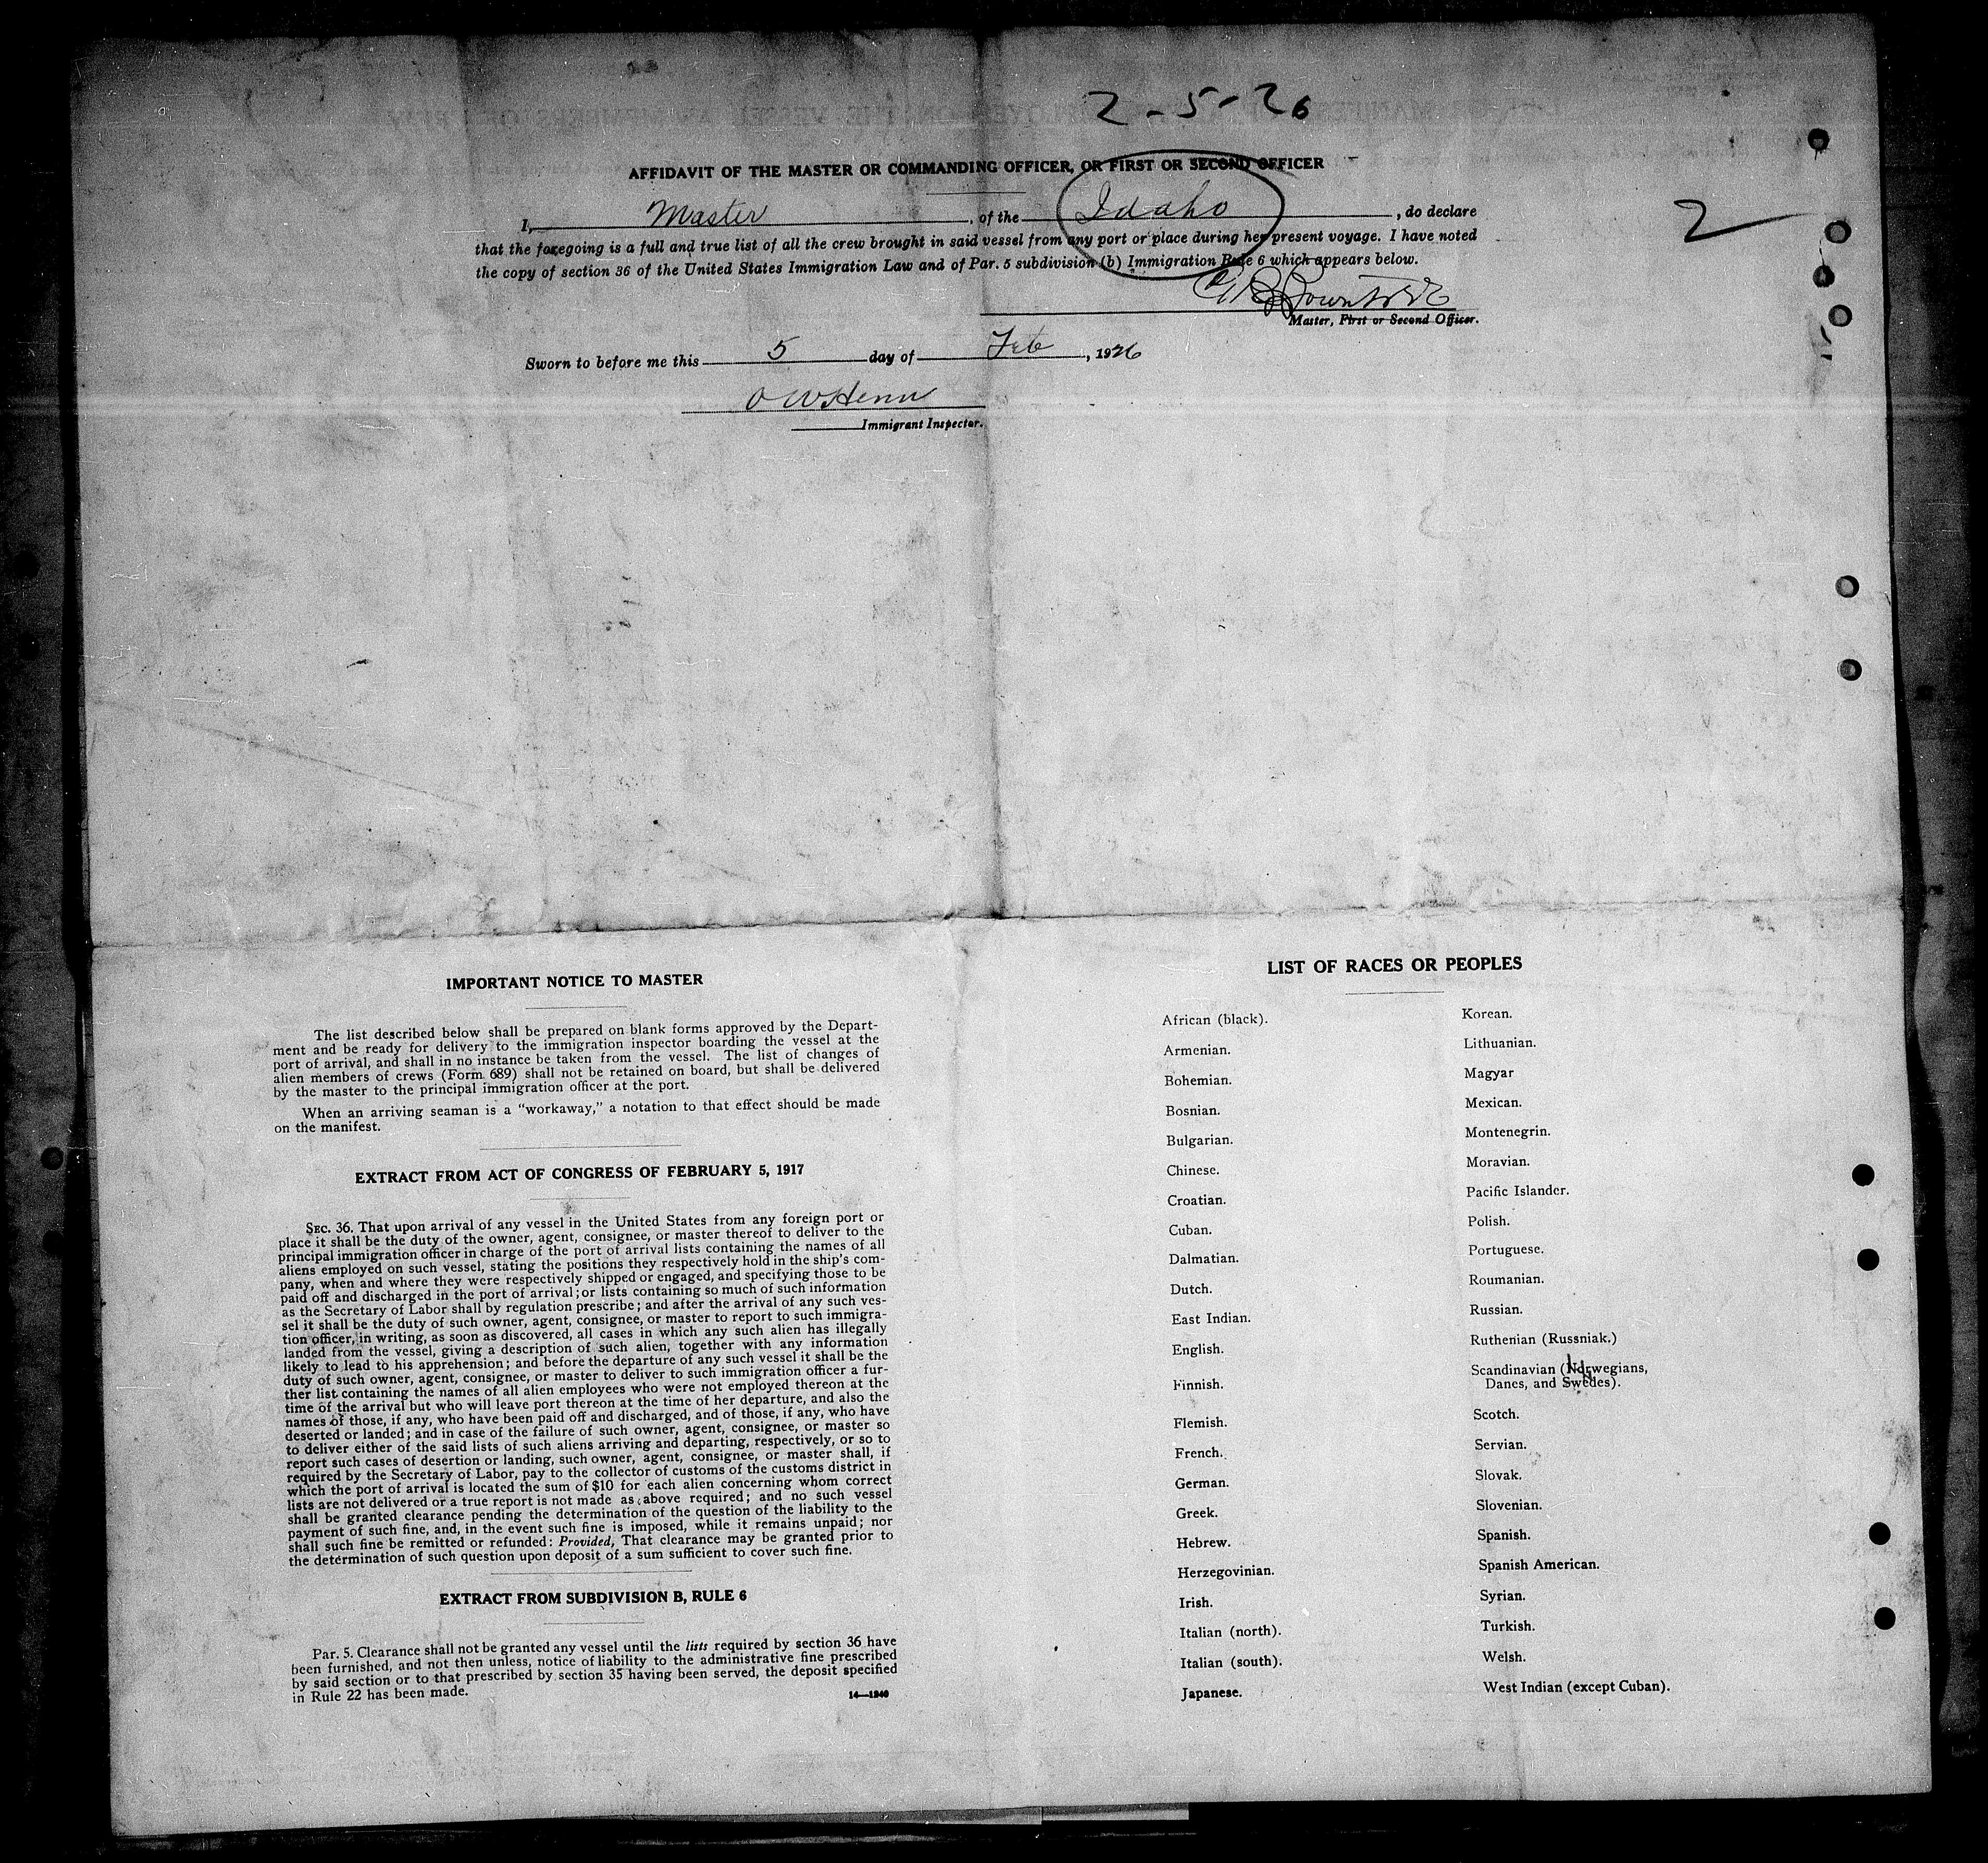 2-5-26
AFFIDAVIT OF THE MASTER OR COMMANDING OFFICER, OR FIRST OR SECOND OFFICER
I, Master, of the Idaho, do declare
2
that the foregoing is a full and true list of all the crew brought in said vessel from any port or place during her present voyage. I have noted
the copy of section 36 of the United States Immigration Law and of Par. 5 subdivision (b) Immigration Rule 6 which appears below.
Master, First or Second Officer.
Sworn to before me this 5 day of Feb, 1926
O W Henn
Immigrant Inspector.
IMPORTANT NOTICE TO MASTER
The list described below shall be prepared on blank forms approved by the Depart-
ment and be ready for delivery to the immigration inspector boarding the vessel at the
port of arrival, and shall in no instance be taken from the vessel. The list of changes of
alien members of crews (Form 689) shall not be retained on board, but shall be delivered
by the master to the principal immigration officer at the port.
When an arriving seaman is a "workaway," a notation to that effect should be made
on the manifest.
EXTRACT FROM ACT OF CONGRESS OF FEBRUARY 5, 1917
SEC. 36. That upon arrival of any vessel in the United States from any foreign port or
place it shall be the duty of the owner, agent, consignee, or master thereof to deliver to the
principal immigration officer in charge of the port of arrival lists containing the names of all
aliens employed on such vessel, stating the positions they respectively hold in the ship's com-
pany, when and where they were respectively shipped or engaged, and specifying those to be
paid off and discharged in the port of arrival; or lists containing so much of such information
as the Secretary of Labor shall by regulation prescribe; and after the arrival of any such ves-
sel it shall be the duty of such owner, agent, consignee, or master to report to such immigra-
tion officer, in writing, as soon as discovered, all cases in which any such alien has illegally
landed from the vessel, giving a description of such alien, together with any information
likely to lead to his apprehension; and before the departure of any such vessel it shall be the
duty of such owner, agent, consignee, or master to deliver to such immigration officer a fur-
ther list containing the names of all alien employees who were not employed thereon at the
time of the arrival but who will leave port thereon at the time of her departure, and also the
names of those, if any, who have been paid off and discharged, and of those, if any, who have
deserted or landed; and in case of the failure of such owner, agent, consignee, or master so
to deliver either of the said lists of such aliens arriving and departing, respectively, or so to
report such cases of desertion or landing, such owner, agent, consignee, or master shall, if
required by the Secretary of Labor, pay to the collector of customs of the customs district in
which the port of arrival is located the sum of $10 for each alien concerning whom correct
lists are not delivered or a true report is not made as above required; and no such vessel
shall be granted clearance pending the determination of the question of the liability to the
payment of such fine, and, in the event such fine is imposed, while it remains unpaid; nor
shall such fine be remitted or refunded: Provided, That clearance may be granted prior to
the determination of such question upon deposit of a sum sufficient to cover such fine.
EXTRACT FROM SUBDIVISION B, RULE 6
Par. 5. Clearance shall not be granted any vessel until the lists required by section 36 have
been furnished, and not then unless, notice of liability to the administrative fine prescribed
by said section or to that prescribed by section 35 having been served, the deposit specified
in Rule 22 has been made.
14—1240
LIST OF RACES OR PEOPLES
African (black).
Armenian.
Bohemian.
Bosnian.
Bulgarian.
Chinese.
Croatian.
Cuban.
Dalmatian.
Dutch.
East Indian.
English.
Finnish.
Flemish.
French.
German.
Greek.
Hebrew.
Herzegovinian.
Irish.
Italian (north).
Italian (south).
Japanese.
Korean.
Lithuanian.
Magyar
Mexican.
Montenegrin.
Moravian.
Pacific Islander.
Polish.
Portuguese.
Roumanian.
Russian.
Ruthenian (Russniak.)
Scandinavian (Norwegians,
Danes, and Swedes).
Scotch.
Servian.
Slovak.
Slovenian.
Spanish.
Spanish American.
Syrian.
Turkish.
Welsh.
West Indian (except Cuban).